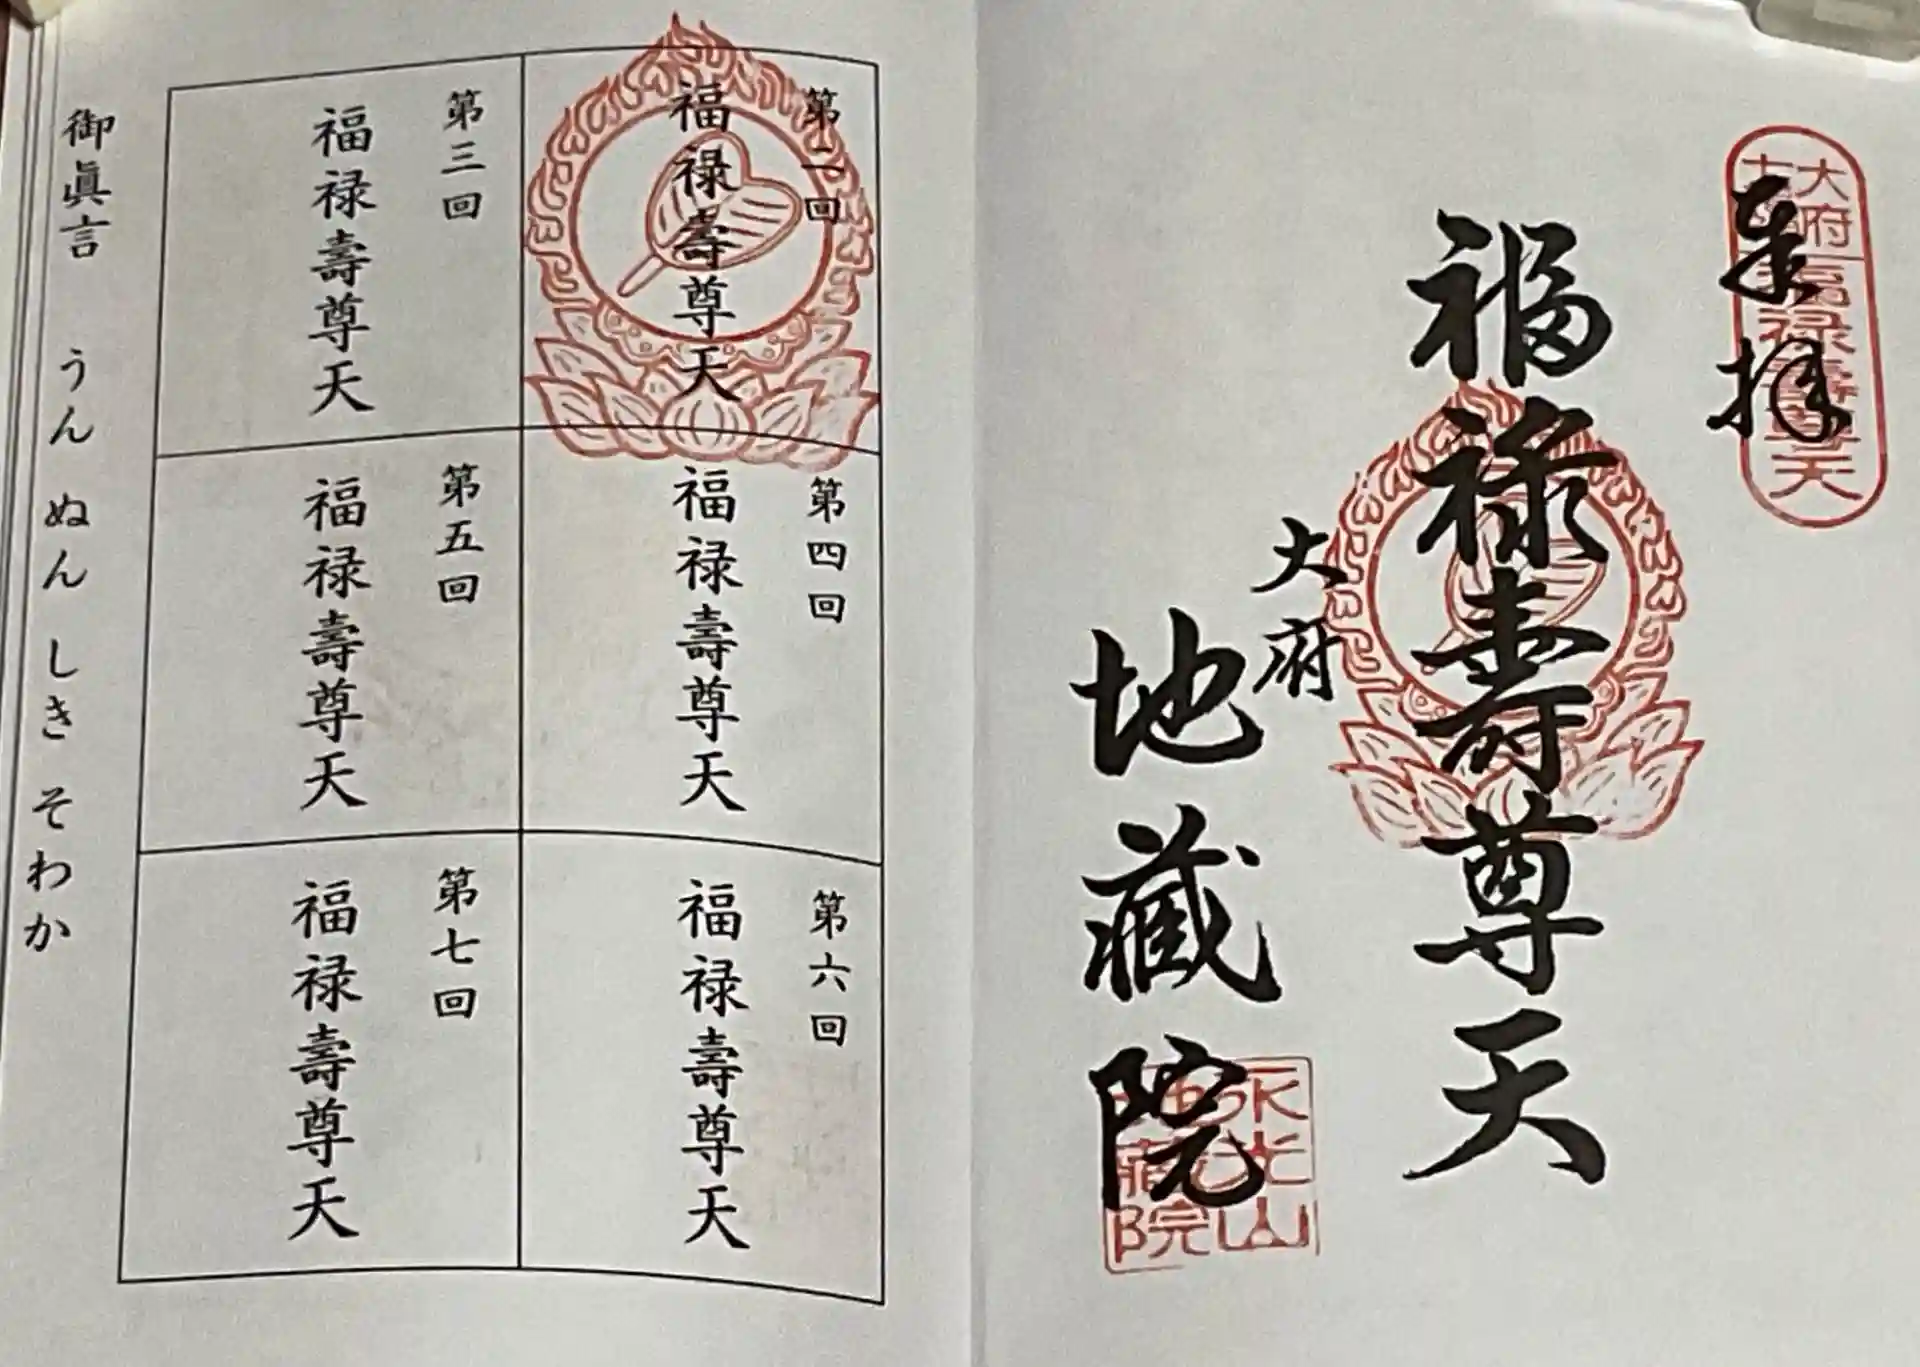 奉拝
福禄寿尊天
大府
地蔵院
大府
福禄寿尊天
永光山
地蔵院
第二回
福禄壽尊天
第三回
福禄壽尊天
第四回
福禄壽尊天
第五回
福禄壽尊天
第六回
福禄壽尊天
第七回
福禄壽尊天
御眞言 うん ぬん しき そわか